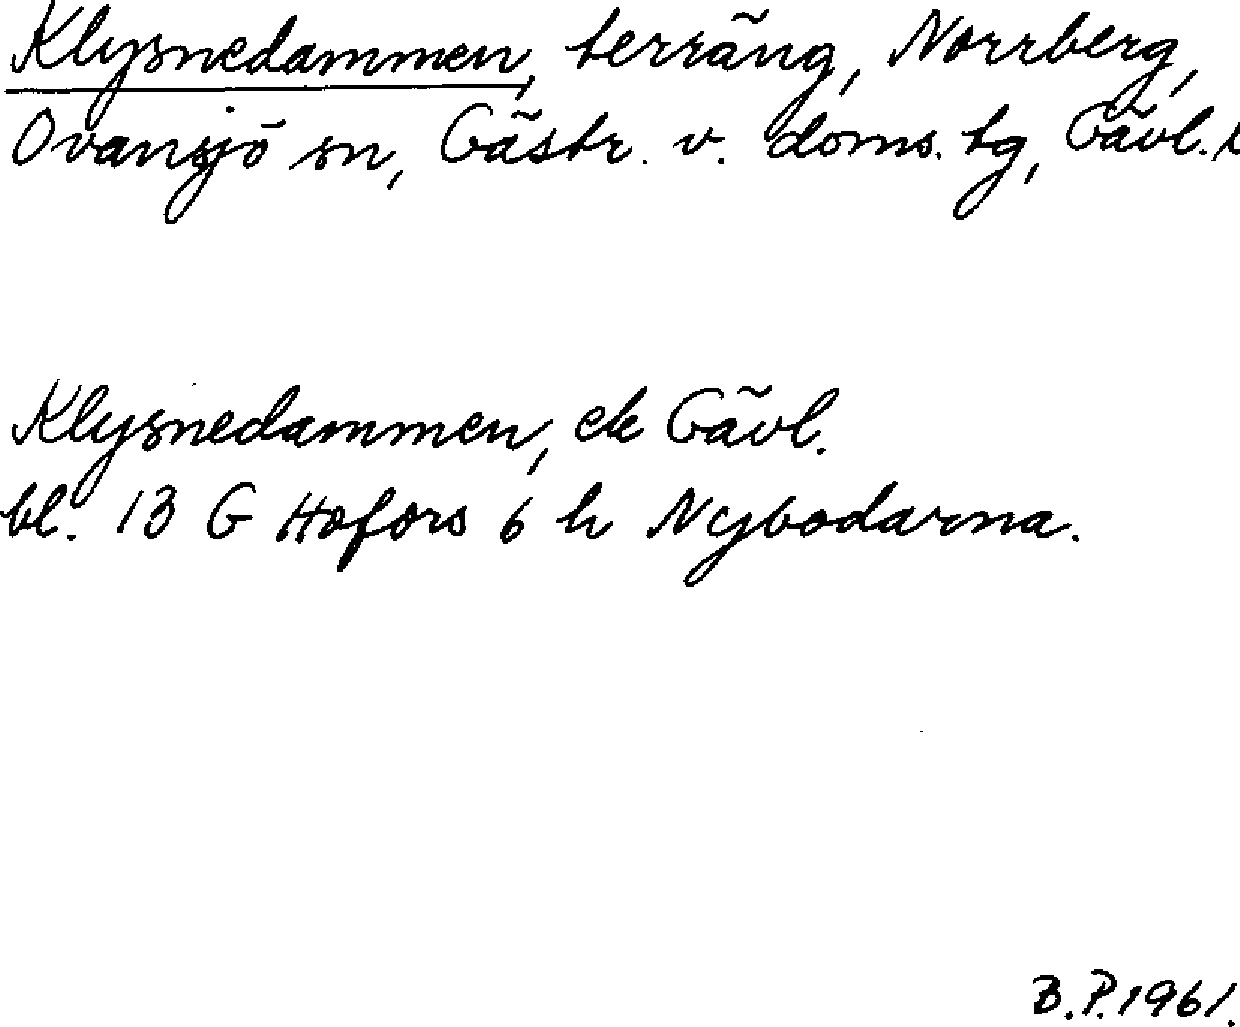 Klysnedammen, terräng, Norrberg,
Ovansjö sn, Gästr. v. doms. tg, Gävl. l
Klysnedammen, ek Gävl.
bl. 13 G Hofors 6 h Nybodarna.
B.P. 1961.